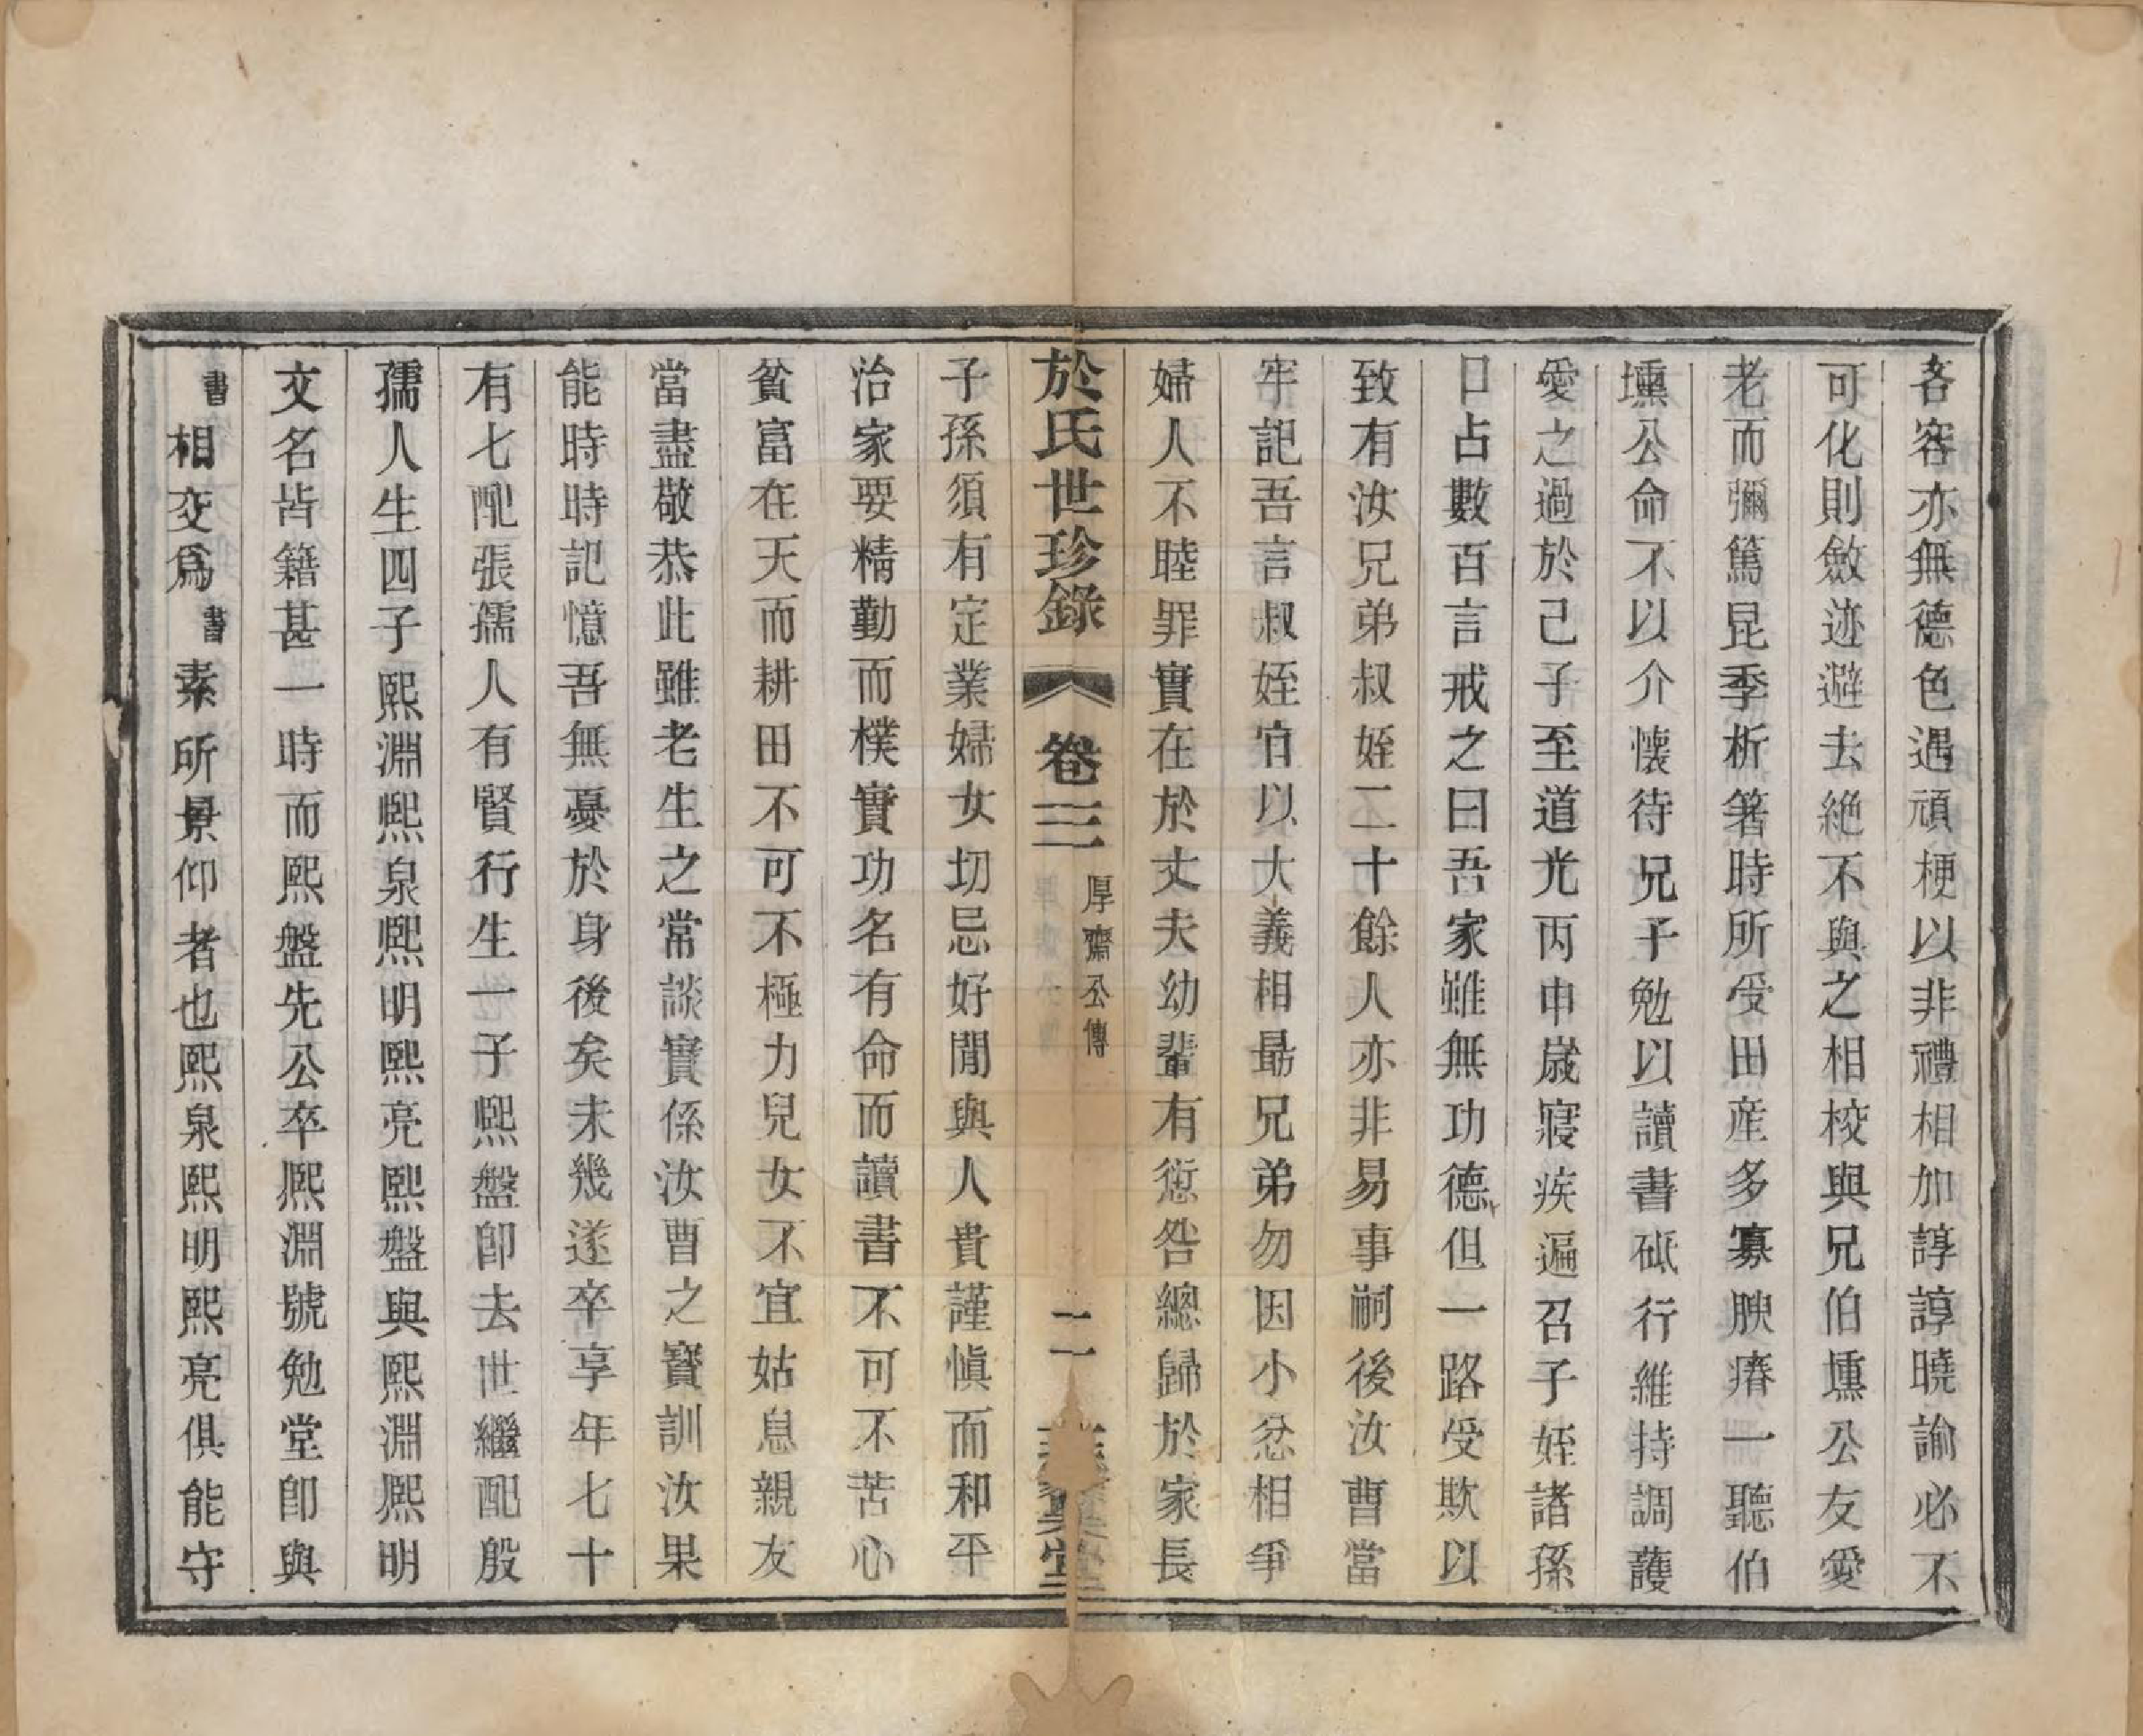 吝容亦無德色遇頑梗以非禮相加諄諄曉諭必不
可化則斂迹避去絶不與之相校與兄伯壎公友愛
老而彌篤昆季析箸時所受田産多寡腴瘠一聽伯
壎公命不以介懷待兄子勉以讀書砥行維持調護
愛之過於己子至道光丙申歲寢疾遍召子姪諸孫
口占數百言戒之曰吾家雖無功德但一路受欺以
致有汝兄弟叔姪二十餘人亦非易事嗣後汝曹當
牢記吾言叔姪宜以大義相勗兄弟勿因小忿相爭
婦人不睦罪實在於丈夫幼輩有愆咎總歸於家長
於氏世珍錄 卷三 厚齋公傳 二 堂
子孫須有定業婦女切忌好閒與人貴謹愼而和平
治家要精勤而樸實功名有命而讀書不可不苦心
貧富在天而耕田不可不極力兒女不宜姑息親友
當盡敬恭此雖老生之常談實係汝曹之寶訓汝果
能時時記憶吾無憂於身後矣未幾遂卒享年七十
有七配張孺人有賢行生一子熙盤卽去世繼配殷
孺人生四子熙淵熙泉熙明熙亮熙盤與熙淵熙明
文名皆籍甚一時而熙盤先公卒熙淵號勉堂卽與
書相交爲書素所景仰者也熙泉熙明熙亮俱能守